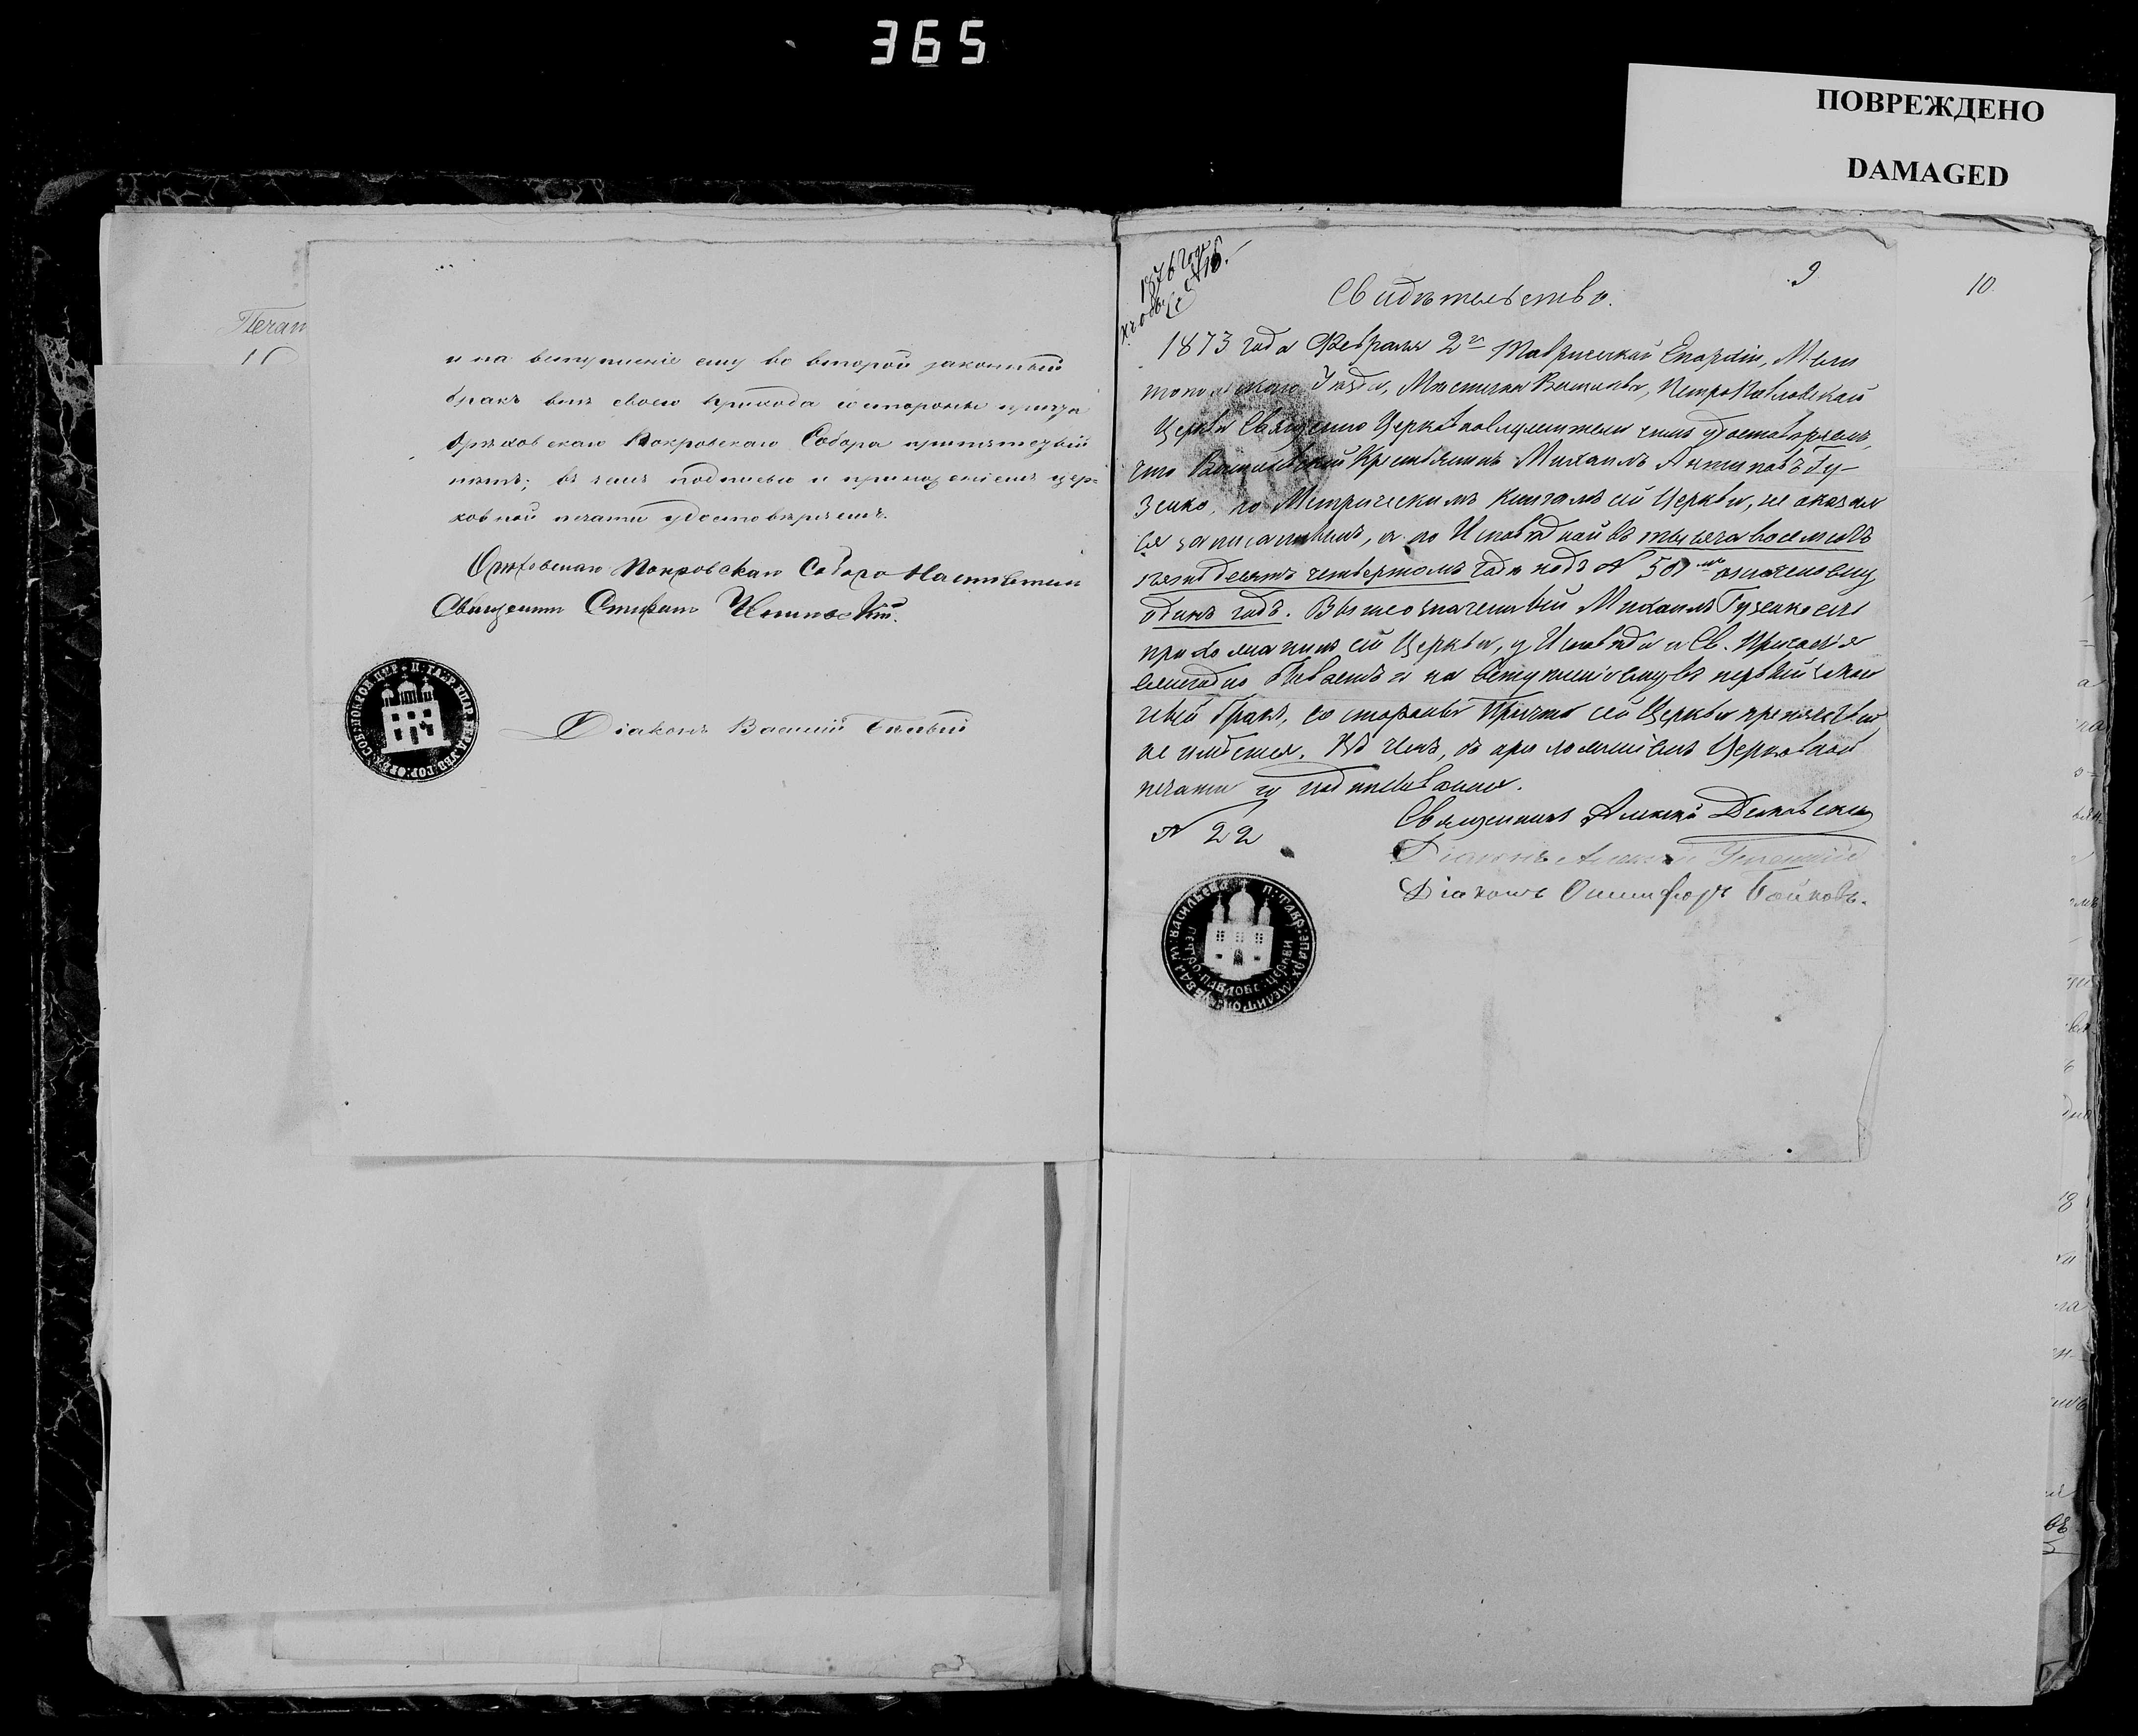 365
ПОВРЕЖДЕНО
DAMAGED
Печат
и на вступленіе ему во второй законный
бракъ внѣ своего прихода со стороны причта
Орѣховскаго Покровскаго Собора препятствій
нѣтъ; въ чемъ подписью и приложеніемъ цер-
ковной печати удостовѣряемъ.
Орѣховскаго Покровскаго Собора Настоятель
Священникъ Стефанъ
Діаконъ Василій Бѣлый
1876 года
№ 16.
9
10
Свидѣтельство.
1873 года Февраля 2го Таврической Епархіи, Мели
топольскаго Уѣзда, Мѣстечка Василевки, ПетроПавловской
Церкви Священно Церковнослужители симъ удостовѣряемъ,
что Василевскій Крестьянинъ Михаилъ Антиповъ Гу-
зенко, по Метрическимъ Книгамъ сей Церкви, не оказал
ся записаннымъ, а по Исповѣдной въ тысяча восемьсотъ
пятьдесятъ четвертомъ года подъ № 501мъ означено ему
одинъ годъ. Вышеозначенный Михаилъ Гузенко есть
прихожанинъ сей Церкви, у Исповѣди и Св. Причастія
ежегодно бываетъ и на вступленіе ему въ первый закон
ный бракъ, со стороны Причта сей Церкви препятствій
не имѣется. Въ чемъ, съ приложеніемъ Церковной
печати и подписываемся.
№ 22
Священникъ Алексій
Діаконъ
Діаконъ Онисифоръ Бойковъ.